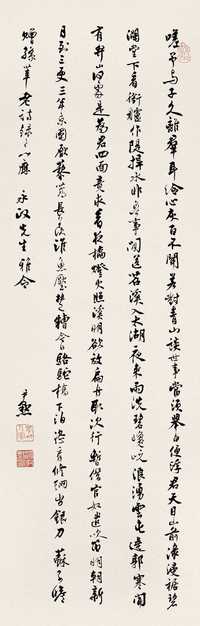 嗟予与子久離羣耳冷心灰百不聞若對青山談世事當須舉白便浮君天目山前渌浸裾碧
瀾堂下看銜艫作隄捍水非吾事閒送苕溪入太湖夜来雨洗碧巑岏浪湧雲屯遶郭寒聞
有弁山何處是為君四面竟求看夜橋燈火照溪明欲放扁舟取次行暫借官奴遣吹笛明朝新
月到三更三年京國厭藜蒿長羡淮魚壓楚糟今日駱駝橋下泊恣看修網出銀刀 蘇子瞻
贈孫莘老詩錄應 永政先生雅令
尹默